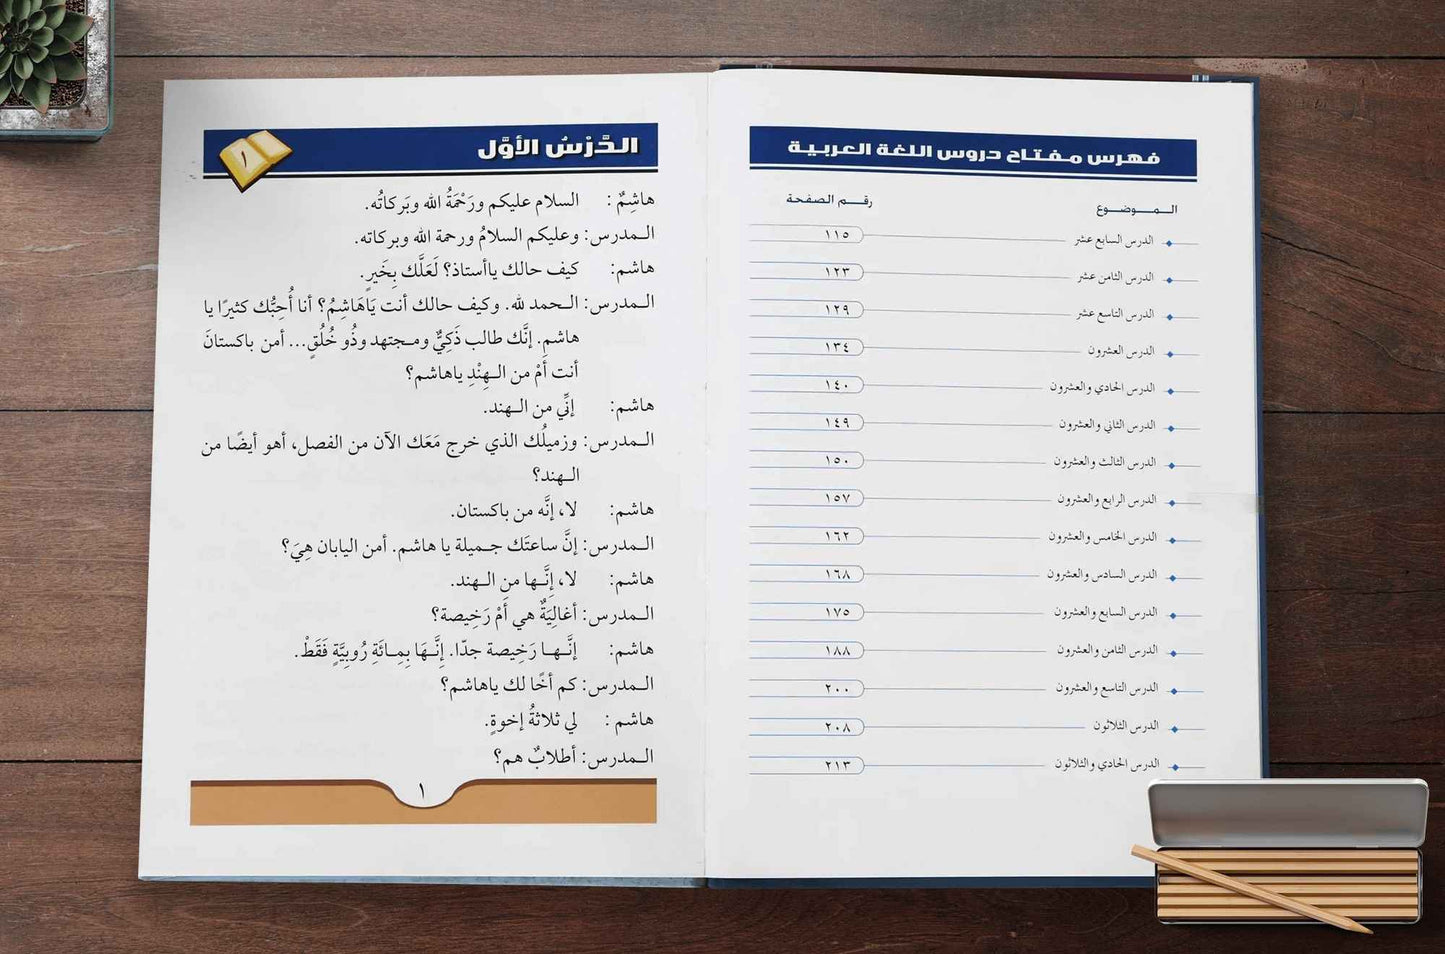 فهرس مفتاح دروس اللغة العربية
الـمـــوضـــوع رقـــم الصفحة
الدرس السابع عشر ١١٥
الدرس الثامن عشر ١٢٣
الدرس التاسع عشر ١٢٩
الدرس العشرون ١٣٤
الدرس الحادي والعشرون ١٤٠
الدرس الثاني والعشرون ١٤٩
الدرس الثالث والعشرون ١٥٠
الدرس الرابع والعشرون ١٥٧
الدرس الخامس والعشرون ١٦٢
الدرس السادس والعشرون ١٦٨
الدرس السابع والعشرون ١٧٥
الدرس الثامن والعشرون ١٨٨
الدرس التاسع والعشرون ٢٠٠
الدرس الثلاثون ٢٠٨
الدرس الحادي والثلاثون ٢١٣
الدَّرْسُ الأَوَّل ١
هاشِمٌ : السلام عليكم ورَحْمَةُ الله وبَركاتُه.
الـمدرس: وعليكم السلامُ ورحمة الله وبركاته.
هاشم: كيف حالك ياأستاذ؟ لَعَلَّك بِخَيرٍ.
الـمدرس: الـحمد لله. وكيف حالك أنت يَاهَاشِمُ؟ أنا أُحِبُّك كثيرًا يا
هاشم. إنَّك طالب ذَكِيٌّ ومـجتهد وذُو خُلُقٍ... أمن باكستانَ
أنت أَمْ من الـهِنْدِ ياهاشم؟
هاشم: إنِّي من الـهند.
الـمدرس: وزميلُك الذي خرج مَعَك الآن من الفصل، أهو أيضًا من
الـهند؟
هاشم: لا، إنَّه من باكستان.
الـمدرس: إنَّ ساعتَك جـميلة يا هاشم. أمن اليابان هِيَ؟
هاشم: لا، إنَّـها من الـهند.
الـمدرس: أغالِيَةٌ هي أَمْ رَخِيصة؟
هاشم: إنَّـهـا رَخِيصة جدّا. إنَّـهَا بِمِـائَةِ رُوبِيَّةٍ فَقَطْ.
الـمدرس: كم أخًا لك ياهاشم؟
هاشم : لي ثلاثةُ إخوةٍ.
الـمدرس: أطلابٌ هم؟
١